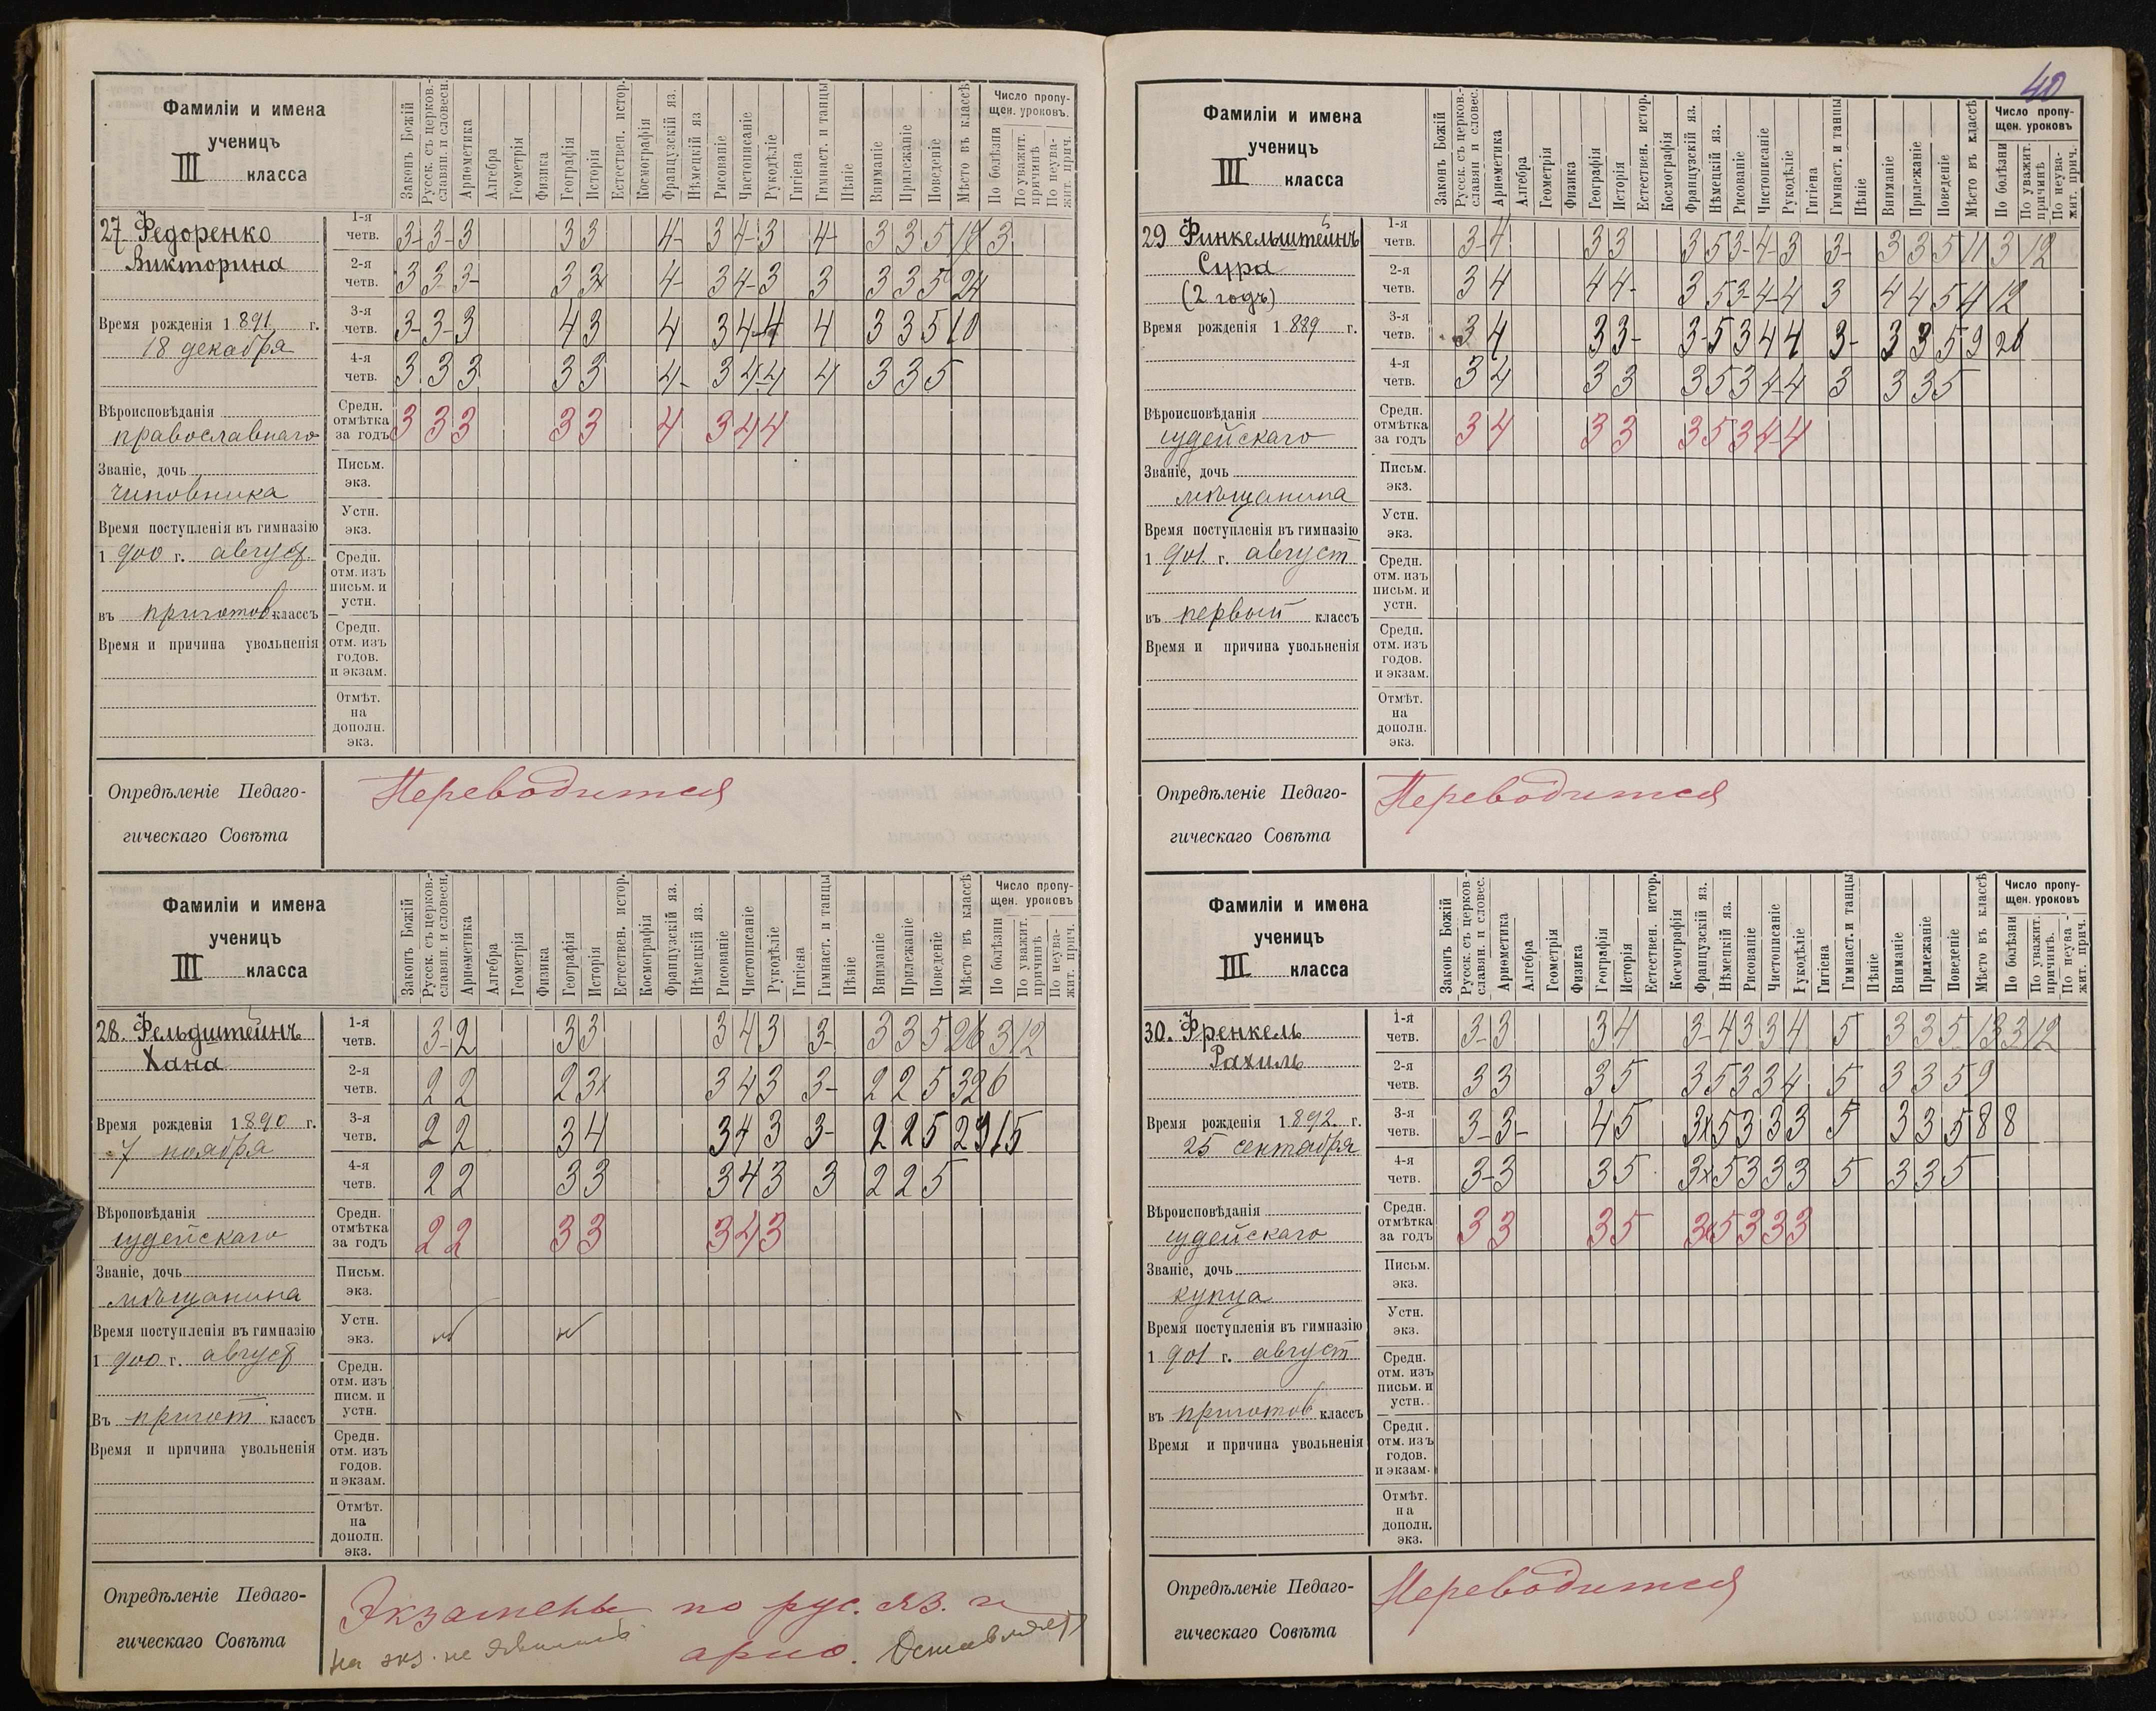 40
Фамиліи и имена
ученицъ
III класса
Законъ Божій
Русск. съ церков.-
славян. и словесн.
Ариѳметика
Алгебра
Геометрія
Физика
Географія
Исторія
Естествен. истор.
Космографія
Французскій яз.
Нѣмецкій яз
Рисованіе
Чистописаніе
Рукодѣліе
Гигіена
Гимнаст. и танцы
Пѣніе
Вниманіе
Прилежаніе
Поведеніе
Мѣсто въ классѣ
Число пропу-
щен. уроковъ.
По болѣзни
По уважит.
причинѣ
По неува-
жит. прич.
27 Федоренко
Викторина
Время рожденія 1891 г.
18 декабря
Вѣроисповѣданія
православнаго
Званіе, дочь
чиновника
Время поступленія въ гимназію
1900 г. август
въ приготов классъ
Время и причина увольненія
1-я четв. 3- 3- 3 3 3 4- 3 4- 3 4- 3 3 5 3
2-я четв. 3 3 3- 3 3 4- 3 4- 3 3 3 3 5 24
3-я четв. 3- 3- 3 4 3 4 3 4 4 4 3 3 5 10
4-я четв. 3 3 3 3 3 4- 3 4 4 4 3 3 5
Средн. отмѣтка за годъ 3 3 3 3 3 4 3 4 4
Письм. экз.
Устн. экз.
Средн. отм. изъ письм. и устн.
Средн. отм. изъ годов. и экзам.
Отмѣт. на дополн. экз.
Опредѣленіе Педаго-
гическаго Совѣта
Переводится
Фамиліи и имена
ученицъ
III класса
Законъ Божій
Русск. съ церков.-
славян. и словесн.
Ариѳметика
Алгебра
Геометрія
Физика
Географія
Исторія
Естествен. истор.
Космографія
Французскій яз.
Нѣмецкій яз.
Рисованіе
Чистописаніе
Рукодѣліе
Гигіена
Гимнаст. и танцы
Пѣніе
Вниманіе
Прилежаніе
Поведеніе
Мѣсто въ классѣ
Число пропу-
щен. уроковъ
По болѣзни
По уважит.
причинѣ
По неува-
жит. прич.
28. Фельдштейнъ
Хана
Время рожденія 1890 г.
7 ноября
Вѣроповѣданія
іудейскаго
Званіе, дочь
мѣщанина
Время поступленія въ гимназію
1900 г. август
Въ пригот классъ
Время и причина увольненія
1-я четв. 3- 2 3 3 3 4 3 3- 3 3 5 26 3 12
2-я четв. 2 2 2 3 3 4 3 3- 2 2 5 32 6
3-я четв. 2 2 3 4 3 4 3 3- 2 2 5 29 15
4-я четв. 2 2 3 3 3 4 3 3 2 2 5
Средн. отмѣтка за годъ 2 2 3 3 3 4 3
Письм. экз.
Устн. экз.
Средн. отм. изъ писм. и устн.
Средн. отм. изъ годов. и экзам.
Отмѣт. на дополн. экз.
Опредѣленіе Педаго-
гическаго Совѣта
Экзамены по рус. яз. и
ариѳ.
на экз. не явилась. Оставляется
Фамиліи и имена
ученицъ
III класса
Законъ Божій
Русск. съ церков.-
славян и словес.
Ариѳметика
Алгебра
Геометрія
Физика
Географія
Исторія
Естествен. истор.
Космографія
Французскій яз.
Нѣмецкій яз.
Рисованіе
Чистописаніе
Рукодѣліе
Гигіена
Гимнаст. и танцы
Пѣніе
Вниманіе
Прилежаніе
Поведеніе
Мѣсто въ классѣ
Число пропу-
щен. уроковъ
По болѣзни
По уважит.
причинѣ
По неува-
жит. прич.
29 Финкельштейнъ
Сура
(2 годъ)
Время рожденія 1889 г.
Вѣроисповѣданія
іудейскаго
Званіе, дочь
мѣщанина
Время поступленія въ гимназію
1901 г. август
въ первый классъ
Время и причина увольненія
1-я четв. 3- 4 3 3 3 5 3- 4- 3 3- 3 3 5 11 3 12
2-я четв. 3 4 4 4- 3 5 3- 4- 4 3 4 4 5 4 12
3-я четв. 3 4 3 3- 3- 5 3 4 4 3- 3 3 5 9 26
4-я четв. 3 4 3 3 3 5 3 4- 4 3 3 3 5
Средн. отмѣтка за годъ 3 4 3 3 3 5 3 4 4
Письм. экз.
Устн. экз.
Средн. отм. изъ письм. и устн.
Средн. отм. изъ годов. и экзам.
Отмѣт. на дополн. экз.
Опредѣленіе Педаго-
гическаго Совѣта
Переводится
Фамиліи и имена
ученицъ
III класса
Законъ Божій
Русск. съ церков.-
славян. и словес.
Ариѳметика
Алгебра
Геометрія
Физика
Географія
Исторія
Естествен. истор.
Космографія
Французскій яз.
Нѣмецкій яз.
Рисованіе
Чистописаніе
Рукодѣліе
Гигіена
Гимнаст. и танцы
Пѣніе
Вниманіе
Прилежаніе
Поведеніе
Мѣсто въ классѣ
Число пропу-
щен. уроковъ
По болѣзни
По уважит.
причинѣ.
По неува-
жит. прич.
30. Френкель
Рахиль
Время рожденія 1892 г.
25 сентября
Вѣроисповѣданія
іудейскаго
Званіе, дочь
купца
Время поступленія въ гимназію
1901 г. август
въ приготов классъ
Время и причина увольненія
1-я четв. 3- 3 3 4 3- 4 3 3 4 5 3 3 5 13 3 12
2-я четв. 3 3 3 5 3 5 3 3 4 5 3 3 5 9
3-я четв. 3- 3- 4 5 3 5 3 3 3 5 3 3 5 8 8
4-я четв. 3- 3 3 5 3 5 3 3 3 5 3 3 5
Средн. отмѣтка за годъ 3 3 3 5 3 5 3 3 3
Письм. экз.
Устн. экз.
Средн. отм. изъ письм. и устн.
Средн. отм. изъ годов. и экзам.
Отмѣт. на дополн. экз.
Опредѣленіе Педаго-
гическаго Совѣта
Переводится